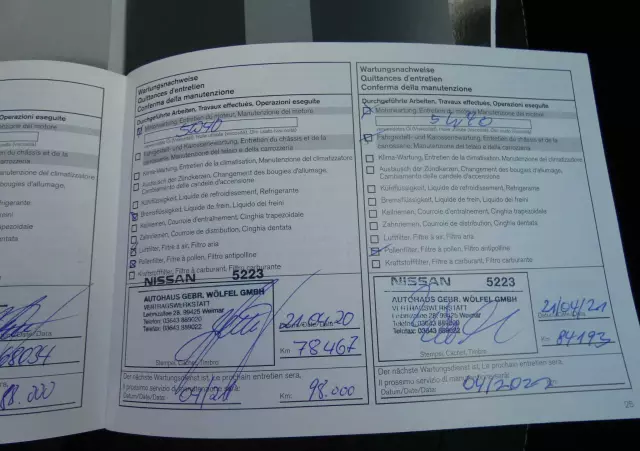 eseguite
Operazioni eseguite
du moteur,
du châssis et de la
Manutenzione del climatizzatore
bougies d'allumage,
Refrigerante
dei freni
trapezoidale
dentata
antipolline
carburante
Date/Data
68034
88.000
Wartungsnachweise
Quittances d'entretien
Conferma della manutenzione
Durchgeführte Arbeiten, Travaux effectués, Operazioni eseguite
Motorwartung, Entretien du moteur, Manutenzione del motore
5W40
Fahrgestell- und Karosseriewartung, Entretien du châssis et de la
carrosserie, Manutenzione del telaio e della carrozzeria
Klima-Wartung, Entretien de la climatisation, Manutenzione del climatizzatore
Austausch der Zündkerzen, Changement des bougies d'allumage,
Cambiamento delle candele d'accensione
Kühlflüssigkeit, Liquide de refroidissement, Refrigerante
Bremsflüssigkeit, Liquide de frein, Liquido dei freni
Keilriemen, Courroie d'entraînement, Cinghia trapezoidale
Zahnriemen, Courroie de distribution, Cinghia dentata
Luftfilter, Filtre à air, Filtro aria
Pollenfilter, Filtre à pollen, Filtro antipolline
Kraftstofffilter, Filtre à carburant, Filtro carburante
NISSAN 5223
AUTOHAUS GEBR. WÖLFEL GMBH
VERTRAGSWERKSTATT
99425 Weimar
Telefon: 03643 889020
Telefax: 03643 889022
Stempel, Cachet, Timbro
21.04.20
Datum/Date/Data
Km 78467
Der nächste Wartungsdienst ist, Le prochain entretien sera,
Il prossimo servizio di manutenzione sarà:
Datum/Date/Data: 04/21 Km: 98.000
Wartungsnachweise
Quittances d'entretien
Conferma della manutenzione
Durchgeführte Arbeiten, Travaux effectués, Operazioni eseguite
Motorwartung, Entretien du moteur, Manutenzione del motore
5W40
Fahrgestell- und Karosseriewartung, Entretien du châssis et de la
carrosserie, Manutenzione del telaio e della carrozzeria
Klima-Wartung, Entretien de la climatisation, Manutenzione del climatizzatore
Austausch der Zündkerzen, Changement des bougies d'allumage,
Cambiamento delle candele d'accensione
Kühlflüssigkeit, Liquide de refroidissement, Refrigerante
Bremsflüssigkeit, Liquide de frein, Liquido dei freni
Keilriemen, Courroie d'entraînement, Cinghia trapezoidale
Zahnriemen, Courroie de distribution, Cinghia dentata
Luftfilter, Filtre à air, Filtro aria
Pollenfilter, Filtre à pollen, Filtro antipolline
Kraftstofffilter, Filtre à carburant, Filtro carburante
NISSAN 5223
AUTOHAUS GEBR. WÖLFEL GMBH
VERTRAGSWERKSTATT
99425 Weimar
Telefon: 03643 889020
Telefax: 03643 889022
Stempel, Cachet, Timbro
21/04/21
Datum/Date/Data
Km 84193
Der nächste Wartungsdienst ist, Le prochain entretien sera,
Il prossimo servizio di manutenzione sarà:
Datum/Date/Data: 04/2022
25